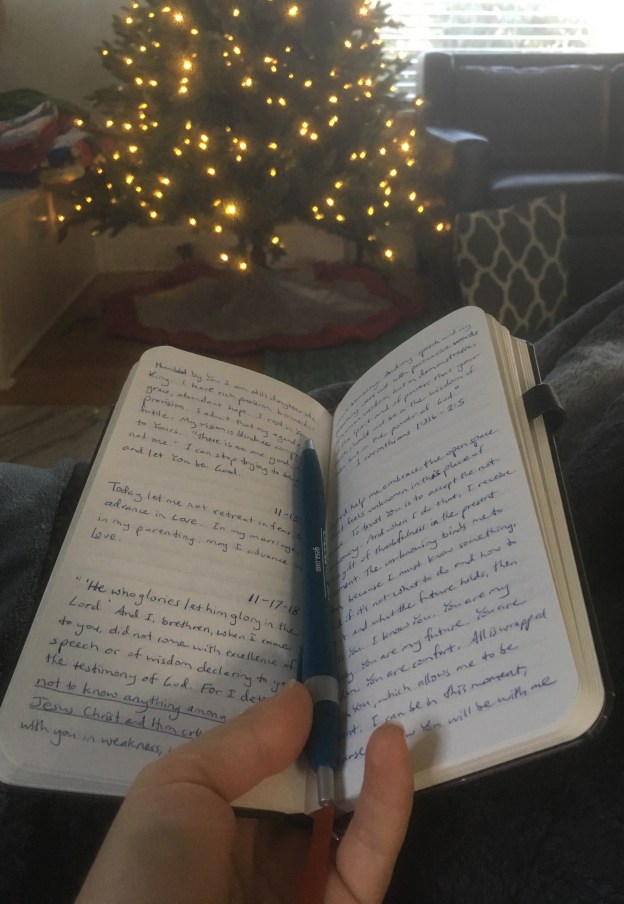 by You I am still daughter of
King. I have rich passion, boundless
grace, abundant hope. I rest in Your
provision. I admit that my agenda
futile. My vision is blind
to Yours. "There is no one good
not me." I can stop trying to be
and let You be God.
11-1
Today let me not retreat in fear
advance in Love. In my marriage
in my parenting may I advance in
Love.
11-17-18
"'He who glories let him glory in the
Lord.' And I, brethren, when I came
to you, did not come with excellence of
speech or of wisdom declaring to you
the testimony of God. For I det
not to know anything among
Jesus Christ and Him
with you in weakness,
trembling. And my speech and my
were not with persuasive words
human wisdom, but in demonstration
Spirit and of power that your
not be in the wisdom of
but in the power of God."
1 Corinthians 1:31b-2:5
help me embrace the open space
feels unknown in this place of
To trust You is to accept the not
And when I do that, I receive
gift of thankfulness in the present
The unknowing binds me to
because I must know something.
if it's not what to do and how to
and what the future holds, then
You. I know You. You are my
You are my future. You are
You are comfort. All is wrapped
You, which allows me to be
I can be in this moment,
You will be with me